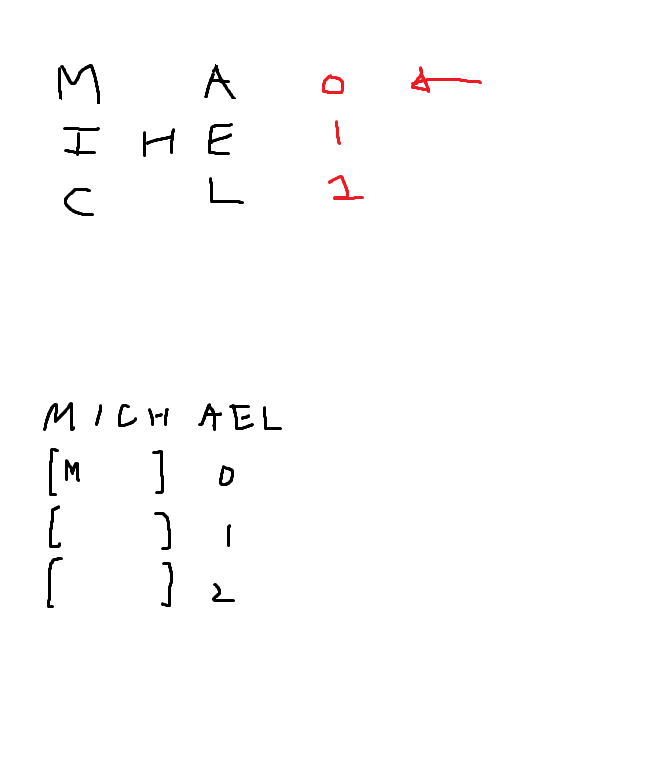 M A 0
I H E 1
C L 1
MICHAEL
[M ] 0
[ ] 1
[ ] 2